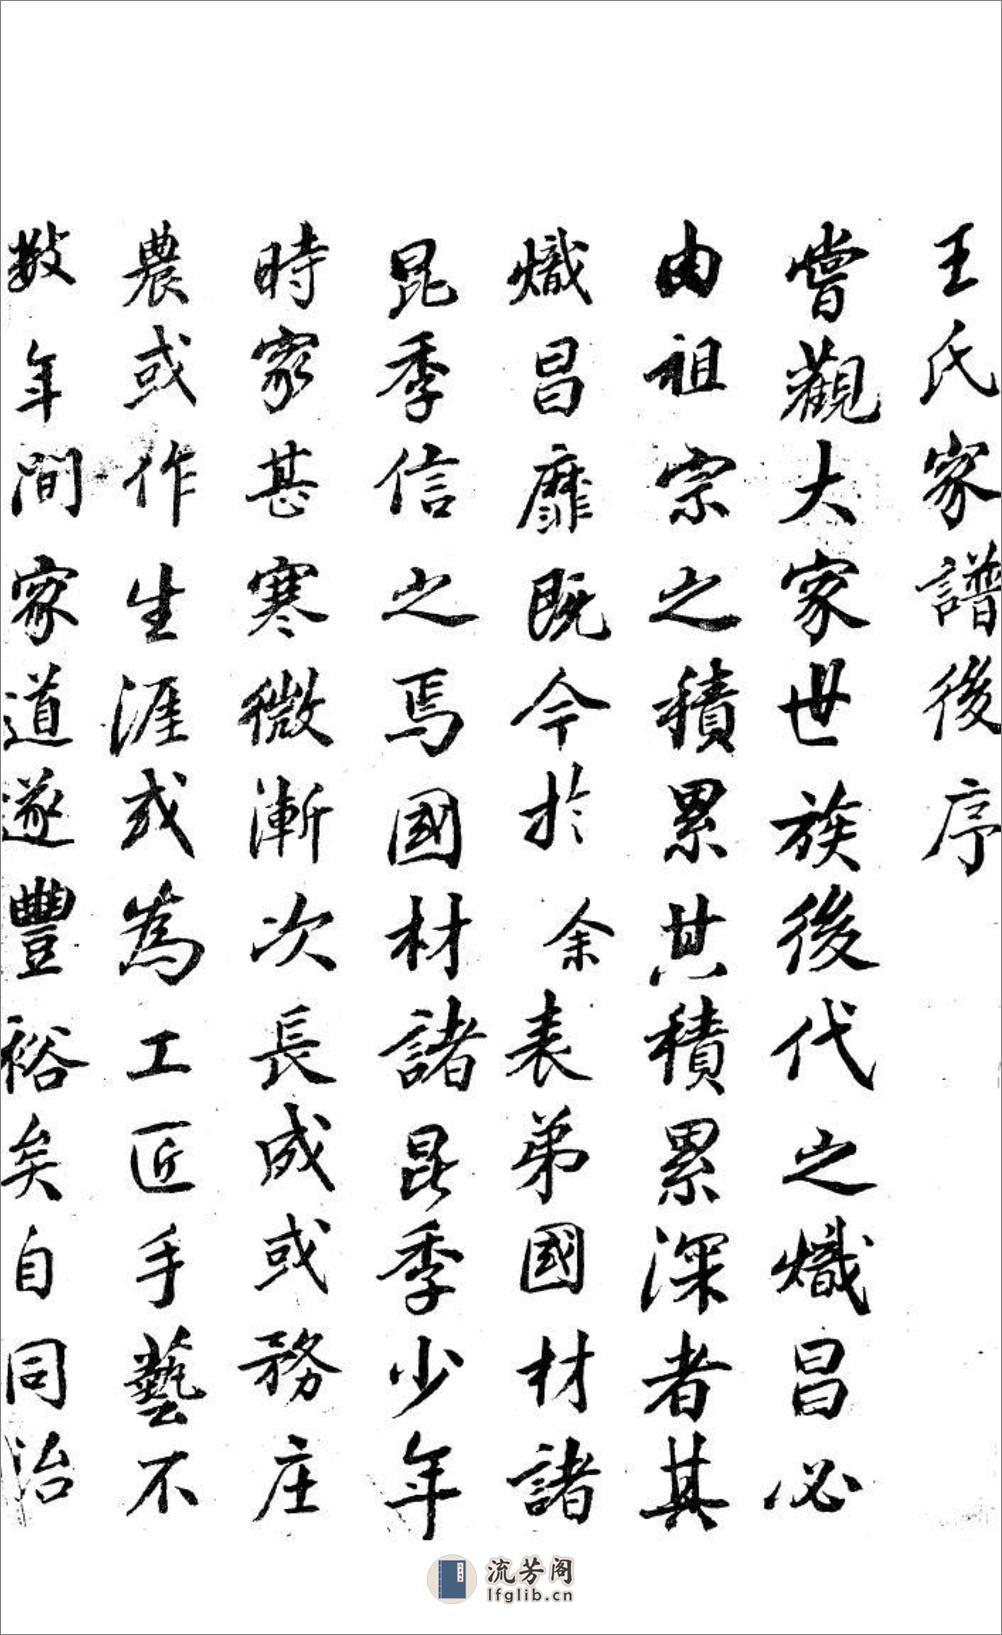 王氏家譜後序
嘗觀大家世族後代之熾昌必
由祖宗之積累其積累深者其
熾昌靡既今於余表弟國材諸
昆季信之焉國材諸昆季少年
時家甚寒微漸次長成或務庄
農或作生涯或為工匠手藝不
数年间家道遂豐裕矣自同治
流芳阁
lfglib.cn